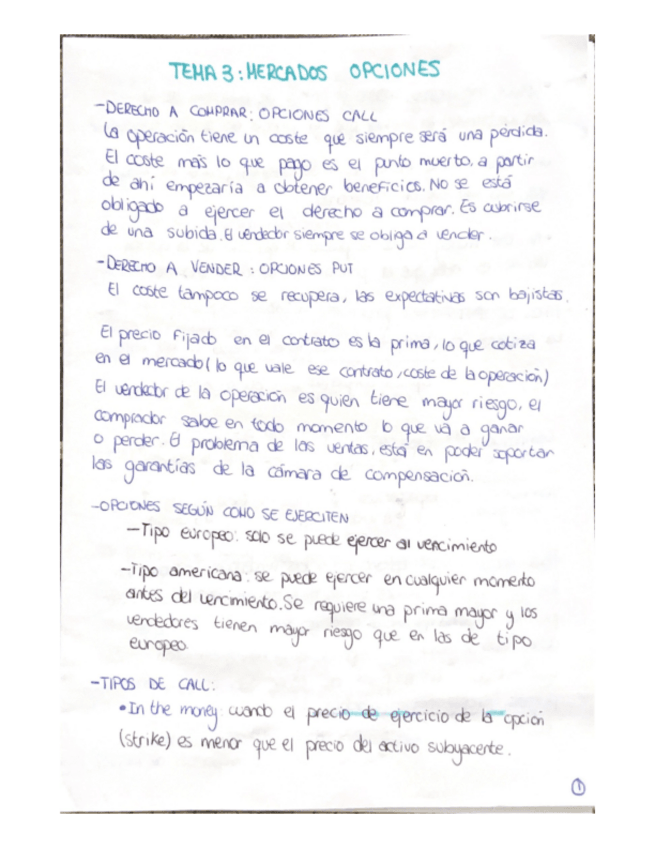 TEMA 3: MERCADOS OPCIONES
-DERECHO A COMPRAR: OPCIONES CALL
La operación tiene un coste que siempre será una pérdida.
El coste más lo que pago es el punto muerto, a partir
de ahí empezaría a obtener beneficios. No se está
obligado a ejercer el derecho a comprar. Es cubrirse
de una subida. El vendedor siempre se obliga a vender.
-DERECHO A VENDER: OPCIONES PUT
El coste tampoco se recupera, las expectativas son bajistas.
El precio fijado en el contrato es la prima, lo que cotiza
en el mercado (lo que vale ese contrato, coste de la operación)
El vendedor de la operación es quien tiene mayor riesgo, el
comprador sabe en todo momento lo que va a ganar
o perder. El problema de las ventas, está en poder soportar
las garantías de la cámara de compensación.
-OPCIONES SEGÚN COMO SE EJERCITEN
-Tipo europeo: solo se puede ejercer al vencimiento
-Tipo americana: se puede ejercer en cualquier momento
antes del vencimiento. Se requiere una prima mayor y los
vendedores tienen mayor riesgo que en las de tipo
europeo
-TIPOS DE CALL:
•In the money: cuando el precio de ejercicio de la opción
(strike) es menor que el precio del activo subyacente.
1